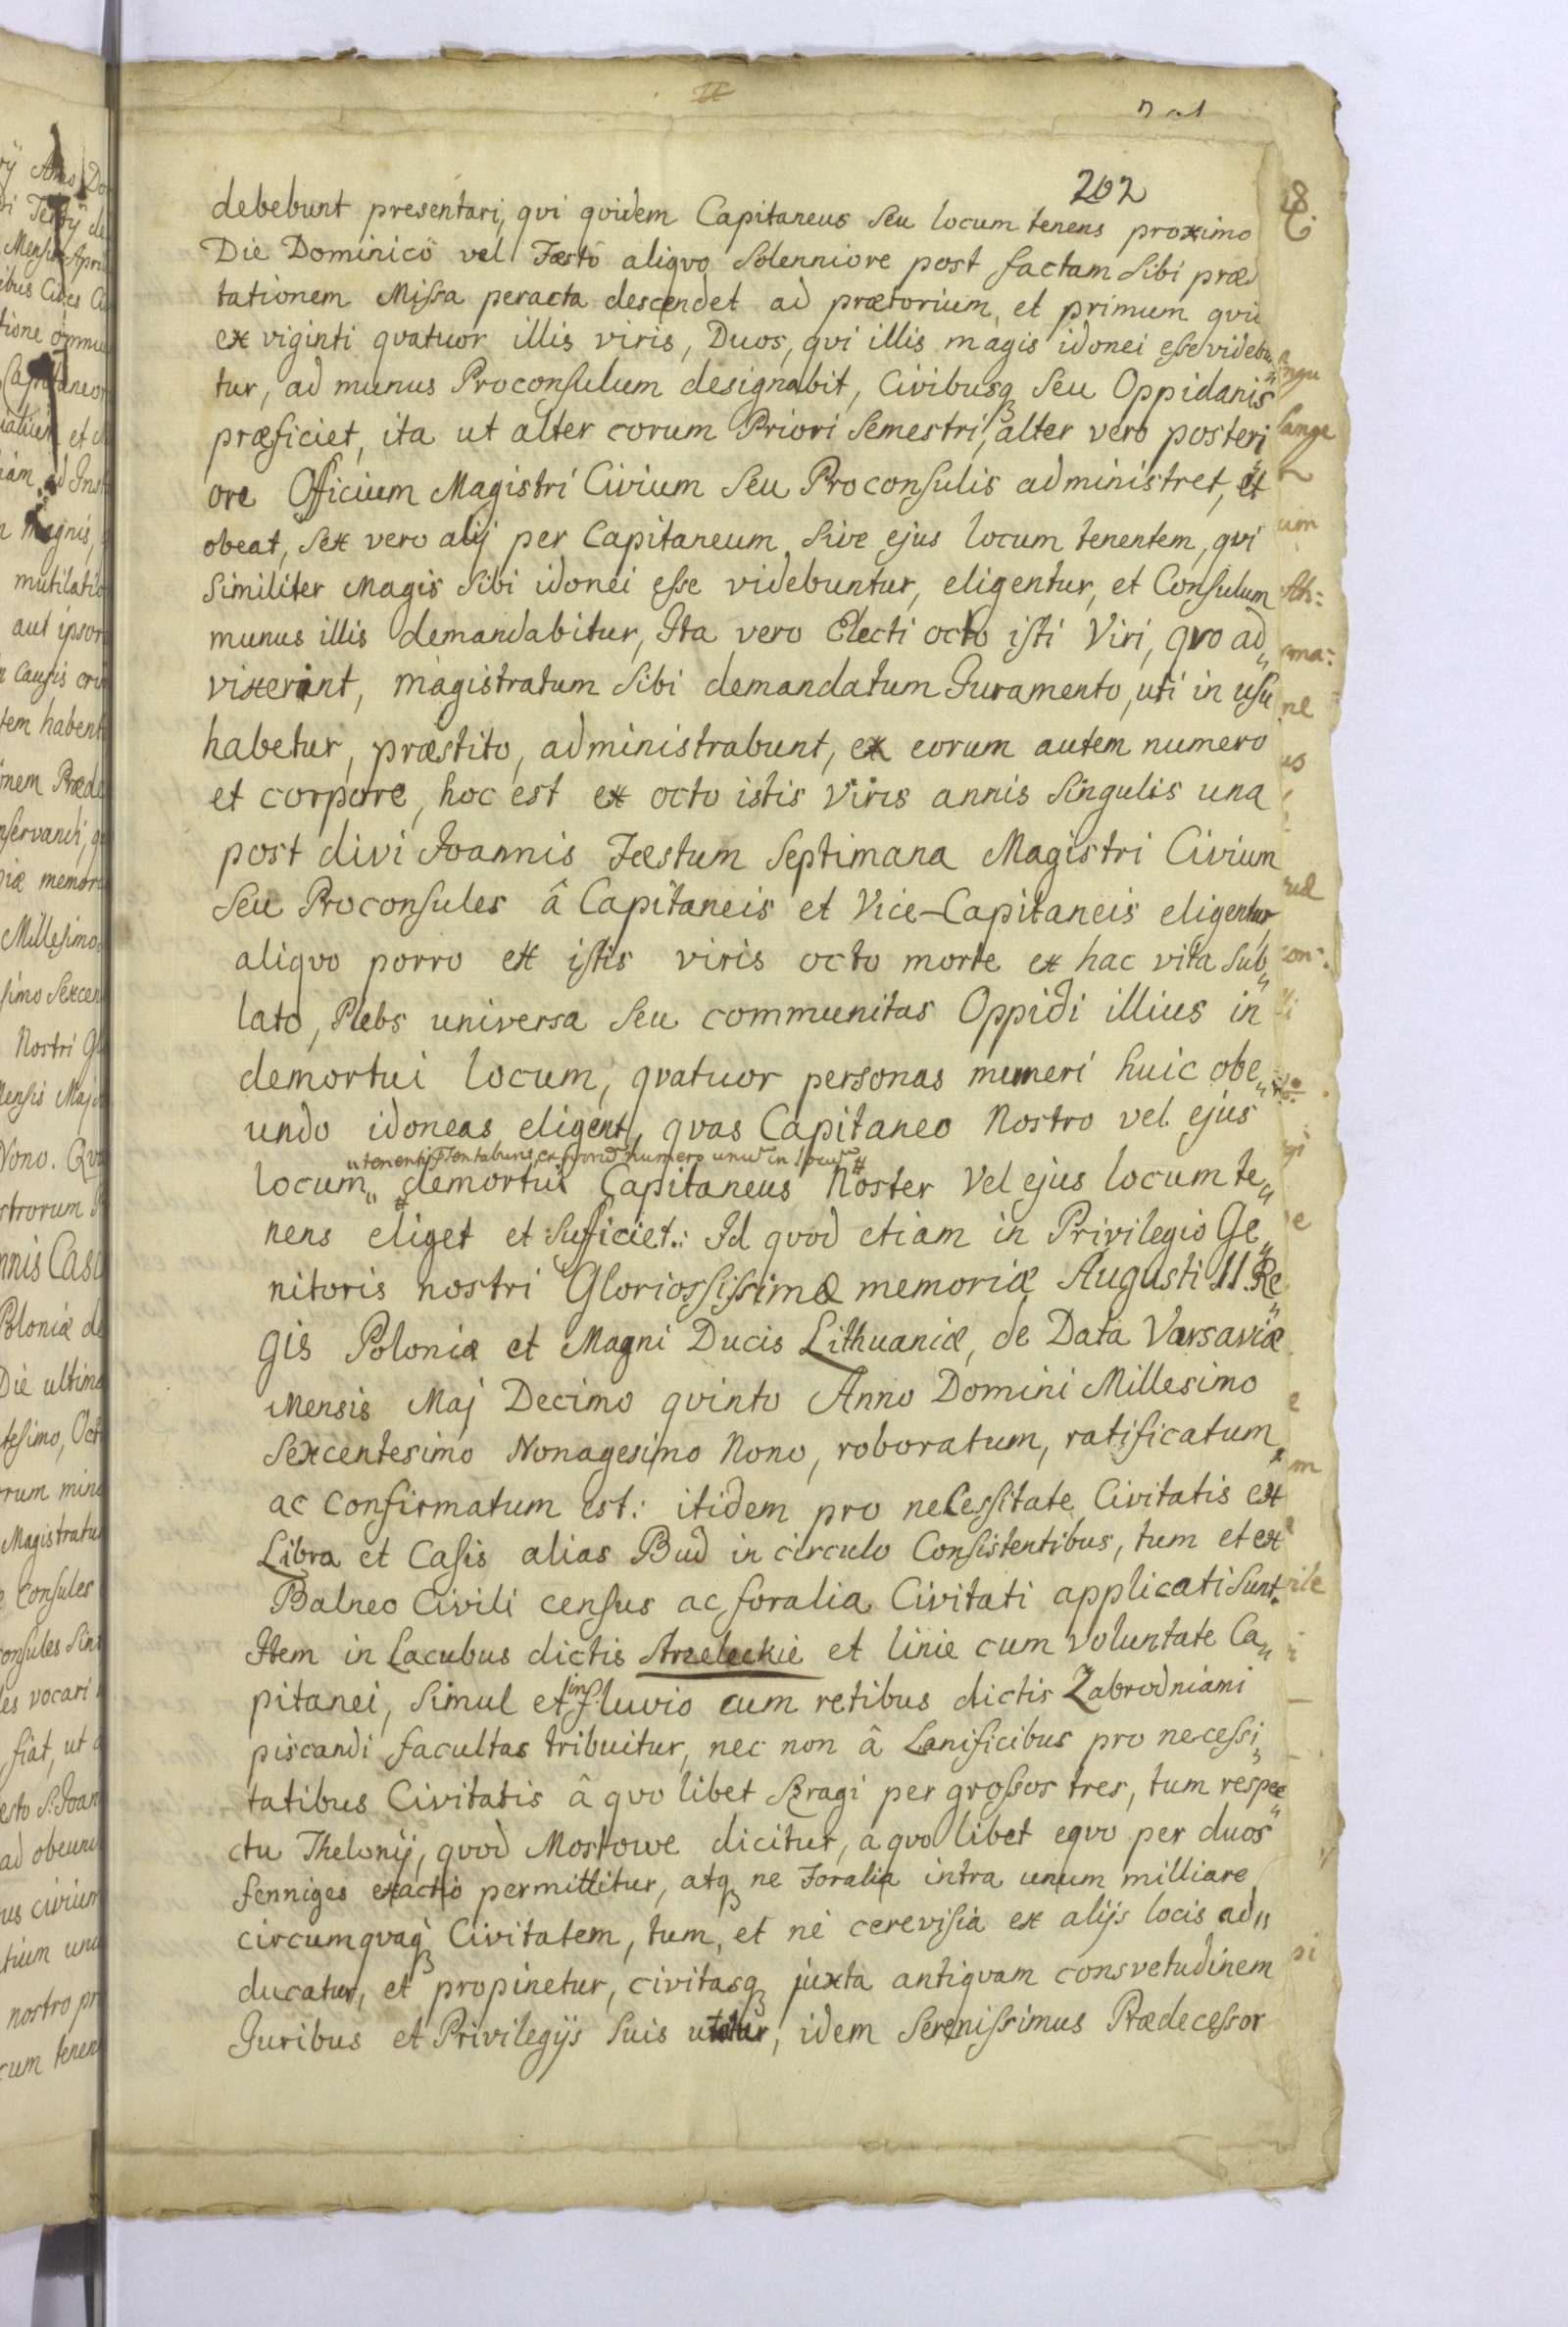 202
debebunt presentari, qvi qvidem Capitaneus seu locum tenens proximo
Die Dominicô vel Fæstô aliqvo Solenniore post factam sibi præ
tationem Missa peracta descendet ad prætorium, et primum
ex viginti qvatuor illis viris, Duos, qvi illis magis idonei esse videbu„
tur, ad munus Proconsulum designabit, Civibusq seu Oppidanis
præficiet, ita ut alter eorum Priori Semestri, alter vero posteri„
ore Officium Magistri Civium seu Proconsulis administret, et
obeat, sex vero alij per Capitaneum sive ejus locum tenentem, qvi
similiter Magis sibi idonei esse videbuntur, eligentur, et Consulum
munus illis demandabitur, Ita vero Electi octo isti Viri, qvo ad„
vixerint, magistratum sibi demandatum Juramento, uti in usu
habetur, præstito, administrabunt, ex eorum autem numero
et corpore, hoc est ex octo istis Viris annis Singulis una
post divi Joannis Fæstum Septimana Magistri Civium
seu Proconsules â Capitaneis et Vice-Capitaneis eligentur,
aliqvo porro ex istis viris octo morte ex hac vita sub„
lato, Plebs universa seu communitas Oppidi illius in
demortui locum, qvatuor personas muneri huic obe„
undo idoneas eligent, qvas Capitaneo Nostro vel ejus
numero unū in locū
locum„ demortui Capitaneus Noster Vel ejus locum te„
nens eliget et sufficiet.: Id qvod etiam in Privilegio Ge„
nitoris nostri Gloriossissimæ memoriæ Augusti II. Re„
gis Poloniæ et Magni Ducis Lithuaniæ, de Data Varsaviæ
Mensis Maj Decimo qvinto Anno Domini Millesimo
Sexcentesimo Nonagesimo Nono, roboratum, ratificatum
ac confirmatum est: itidem pro necessitate Civitatis ex
Libra et Casis alias Bud in circulo Consistentibus, tum et ex
Balneo Civili census ac foralia Civitati applicati sunt.
Item in Lacubus dictis Strzeleckie et linie cum voluntate Ca„
pitanei, simul et in fluvio cum retibus dictis Zabrodniami
piscandi facultas tribuitur, nec non â Lanificibus pro necessi„
tatibus Civitatis â qvo libet Kragi per grossos tres, tum respe„
ctu Thelonij, qvod Mostowe dicitur, a qvo libet eqvo per duos
fenniges exactio permittitur, atq ne Foralia intra unum milliare
circumqvaq Civitatem, tum, et ne cerevisia ex alijs locis ad„
ducatur, et propinetur, civitasq juxta antiqvam consvetudinem
Juribus et Privilegijs suis utatur, idem Serenissimus Prædecessor